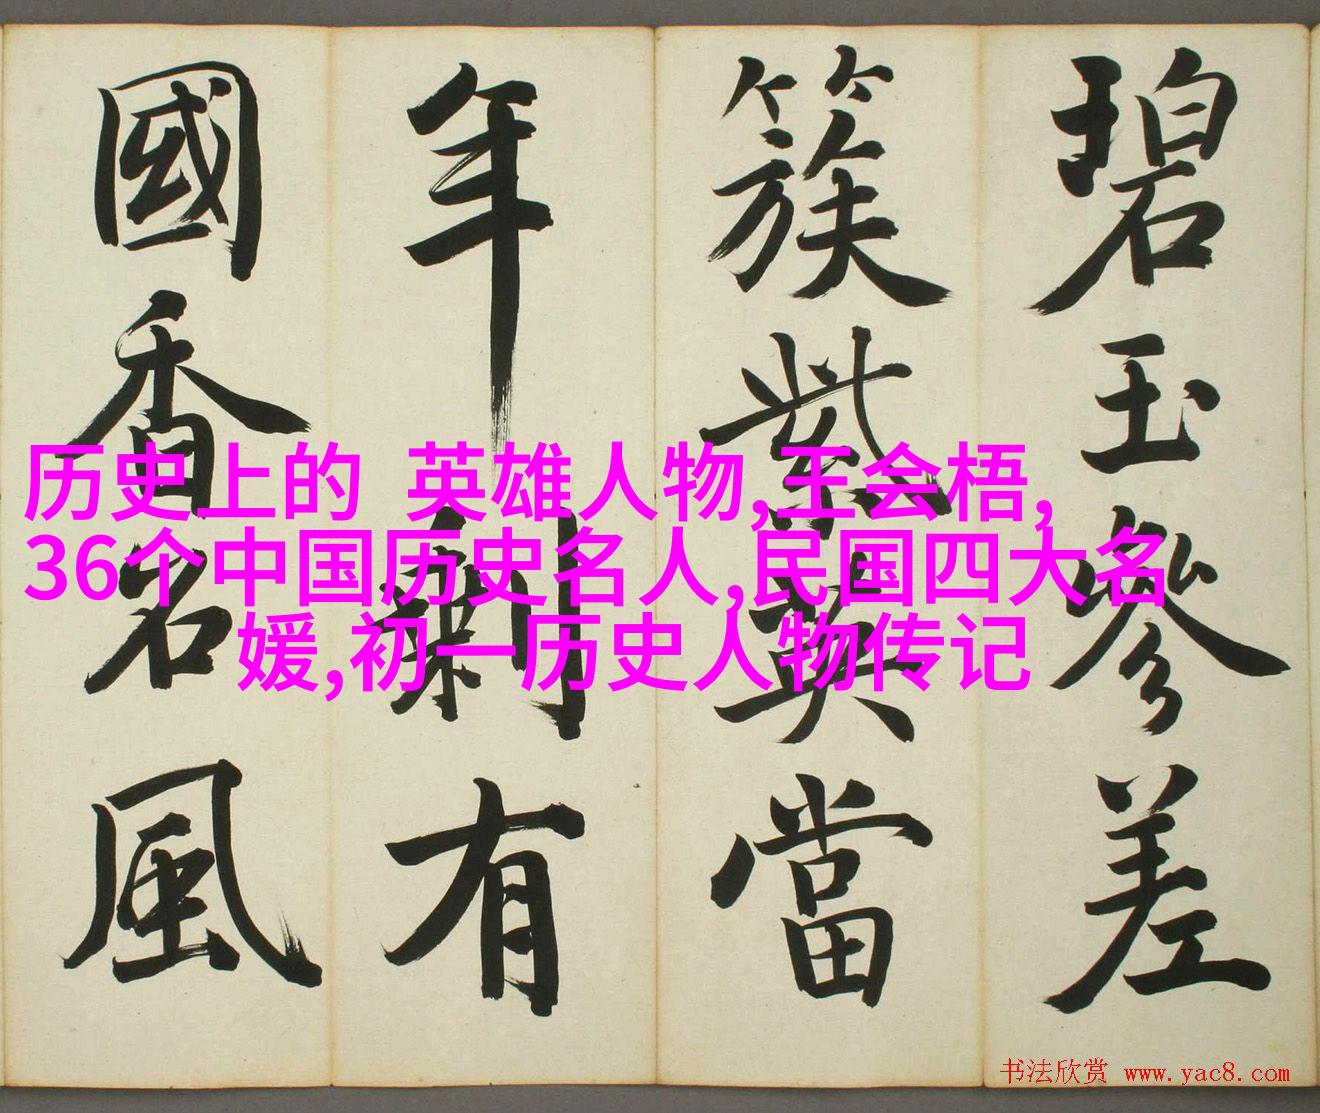 碧玉參差
簇紫英當
年剩有
國香名風
历史上的 英雄人物,王会梧,
36个中国历史名人,民国四大名
媛,初一历史人物传记
书法欣赏 www.yac8.com